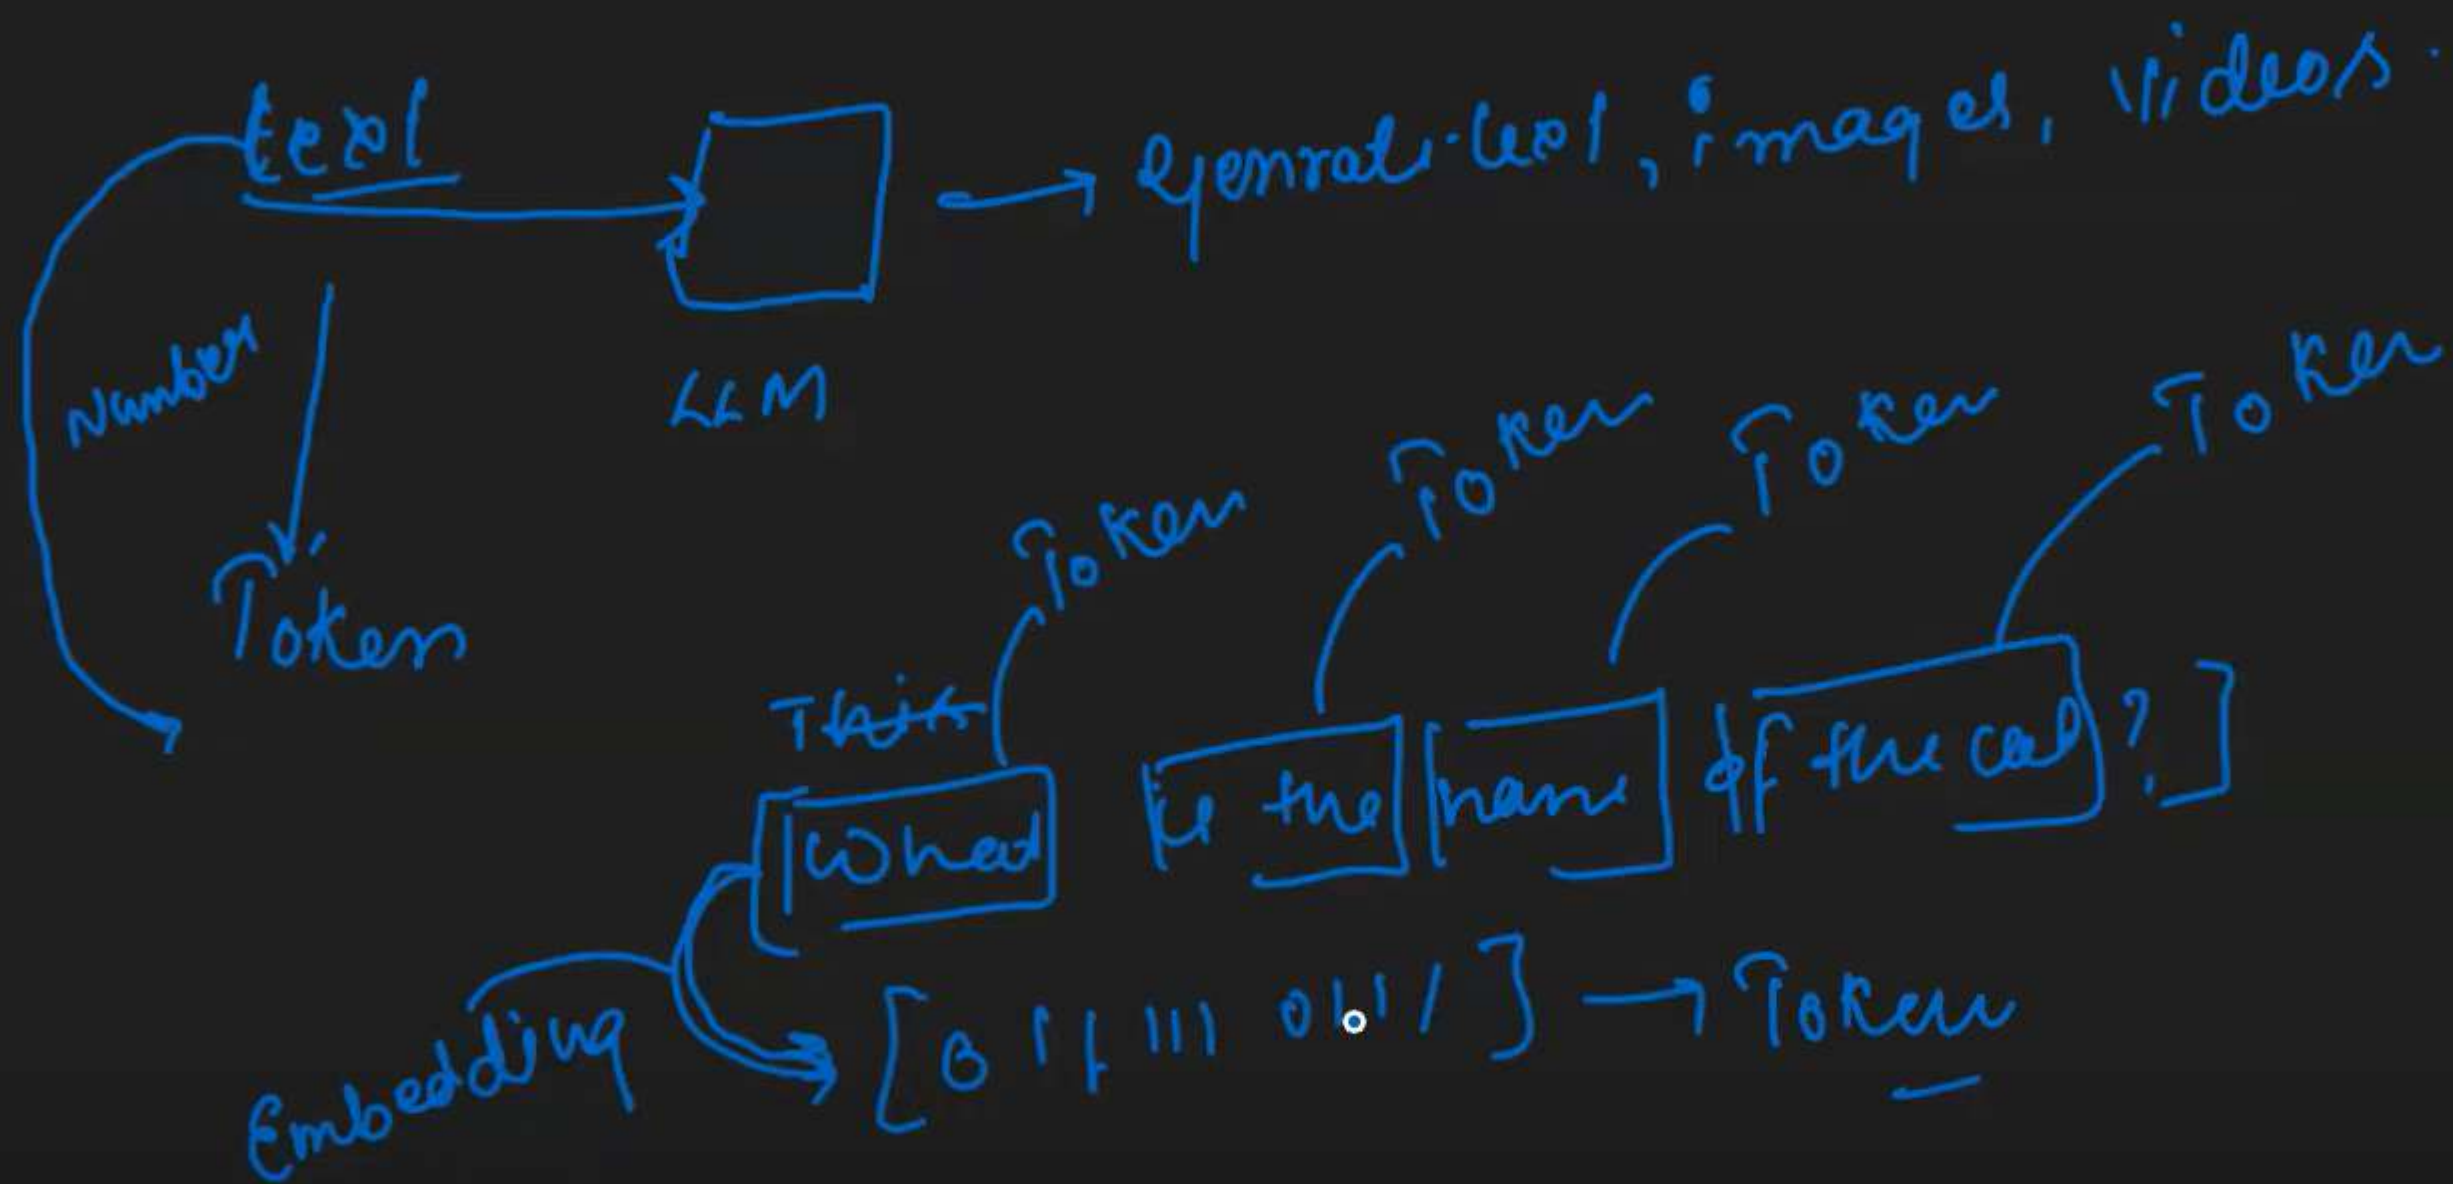 text → Genrati text, images, videos.
Number
LLM
Token
Token Token Token Token
This
[What is the name of the cat?]
Embedding
[0 1 1 1 1 1 0 1 1 1] → Token